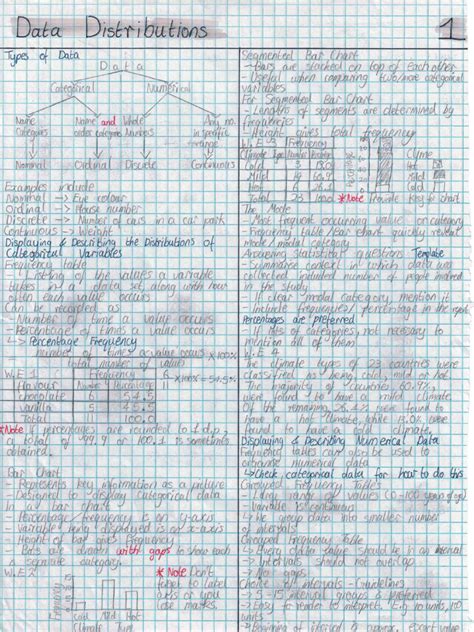 Data Distributions
1
Types of Data
Data
Categorical Numerical
Name Name and Whole Any no.
Categories order categories Numbers in specific
range
Nominal Ordinal Discrete Continuous
Examples include
Nominal -> Eye colour
Ordinal -> House number
Discrete -> Number of cars in a car park
Continuous -> Weight
Displaying & Describing the Distributions of
Categorical Variables
Frequency table
- Listing of the values a variable
takes in a data set along with how
often each value occurs
Can be recorded as
- Number of times a value occurs
- Percentage of times a value occurs
↳ Percentage Frequency
number of times a value occurs x 100%
total number of value
W.E 1 Frequency
Flavour Number Percentage
chocolate 6 54.5
vanilla 5 45.5
Total 11 100.0
*Note If percentages are rounded to 1 d.p,
a total of 99.9 or 100.1 is sometimes
obtained.
Bar Chart
- Represents key information as a picture
- Designed to display categorical data
in a bar chart
- Percentage frequency is on y-axis
- Variable being displayed is on x-axis
- Height of bar gives frequency
- Bars are drawn with gaps to show each
is a separate category.
W.E 2
*Note Don't
label to label
axis or you
lose marks
Frequency
Cold Mild Hot
Climate Type
Segmented Bar Chart
- Bars are stacked on top of each other
- Useful when comparing two/more categorical
variables
For Segmented Bar Chart
- Lengths of segments are determined by
frequencies
- Height gives total frequency
W.E 3 Frequency
Climate Type Number Percent
Cold 3 13.0
Mild 14 60.9
Hot 6 26.1
Total 23 100.0
Climate
Hot
Mild
Cold
*Note Provide Key to chart
The Mode
- Most frequent occurring value or category
- Frequency Table/Bar chart quickly reveal
mode/modal category
Answering Statistical questions Template
- Summarise context in which data was
collected included number of people indeed
in the study
- If clear modal category, mention it
- Include frequencies/percentage in the report
Percentages are preferred
- If lots of categories, not necessary to
mention all of them
W.E 4
The climate types of 23 countries were
classified as being cold, mild or hot.
The majority of countries 60.9%
were found to have a mild climate.
Of the remaining, 26.1% were found to
have a hot climate, while 13.0% were
found to have a cold climate.
Displaying & Describing Numerical Data
Frequency tables can also be used to
organise numerical data
↳ Check categorical data for how to do this
- Large range of values (0-100 years of age)
- Variable is continuous
↳ We group data into smaller number
of intervals
Grouped Frequency Table
↳ Every data value should be in an interval
↳ Intervals should not overlap
Choice of intervals - Guidelines
- 5-15 interval groups is preferred
- Easy to read or interpret. E.g 10 units, 100
units
- Beginning of interval is approx. exact value